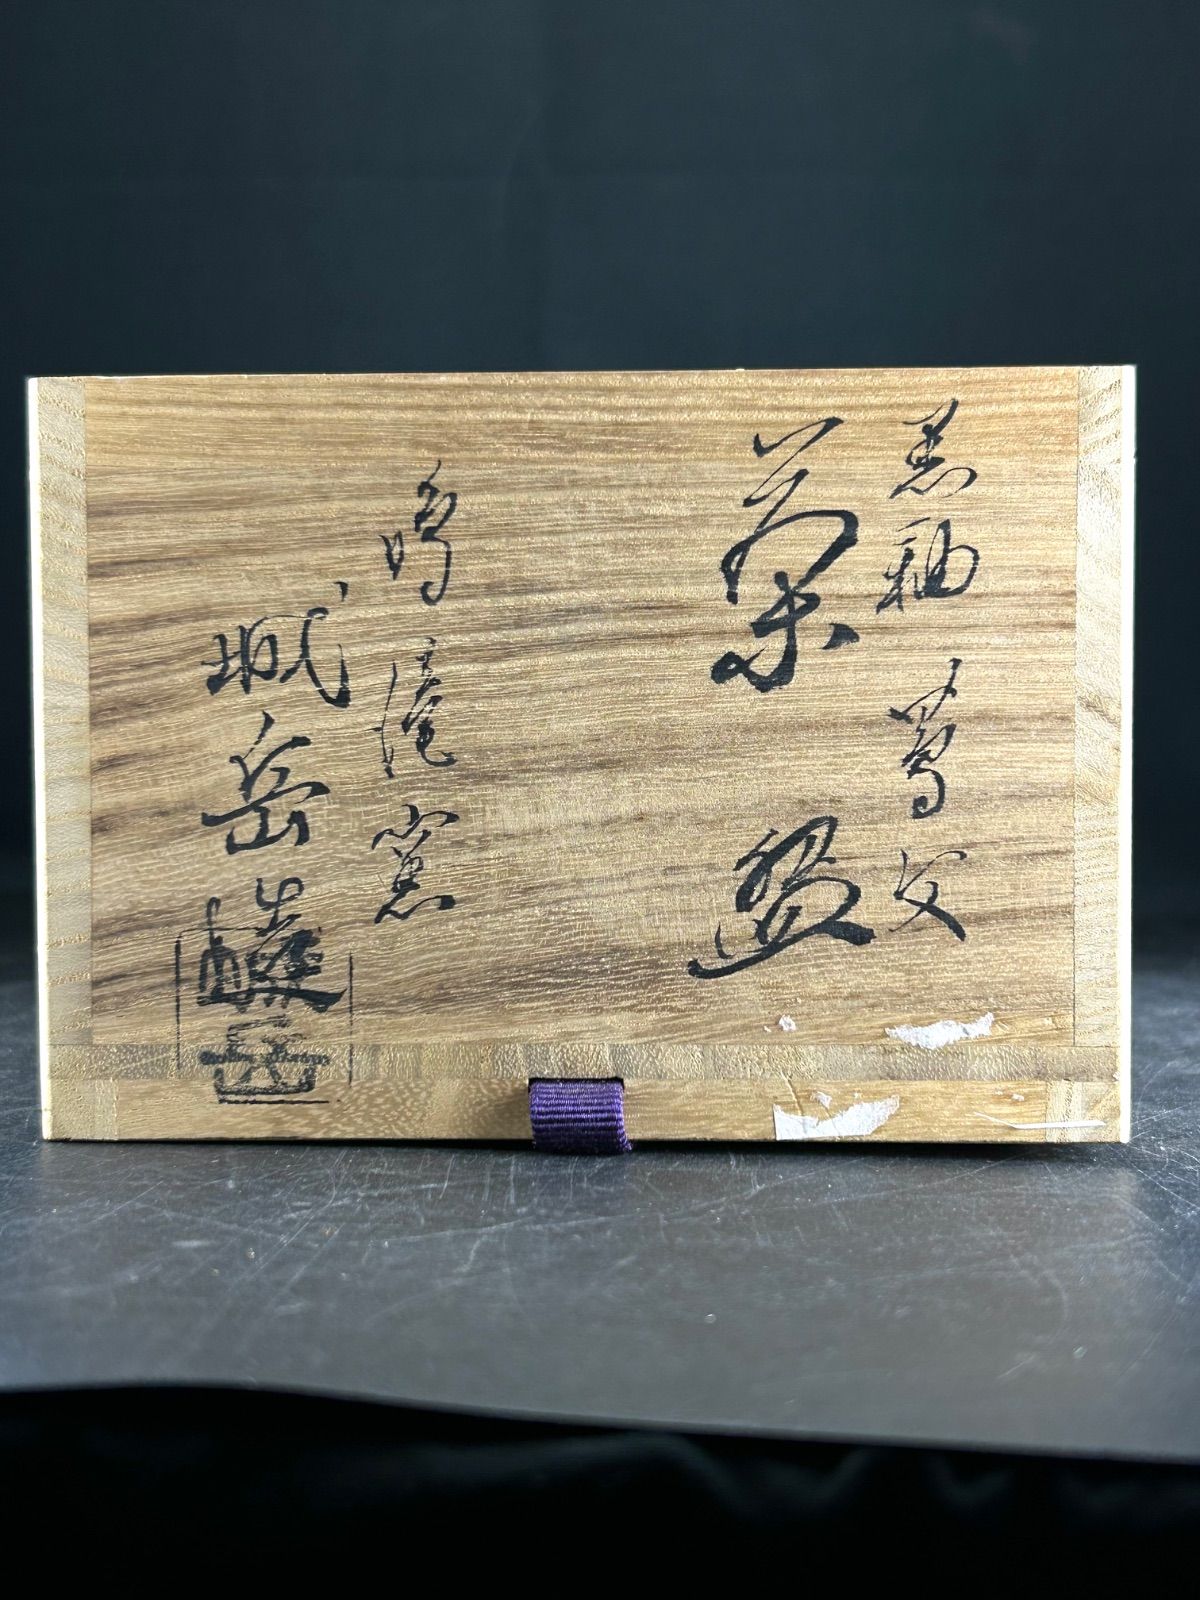 黒釉 蔦文
菓盌
鳴滝窯
城岳